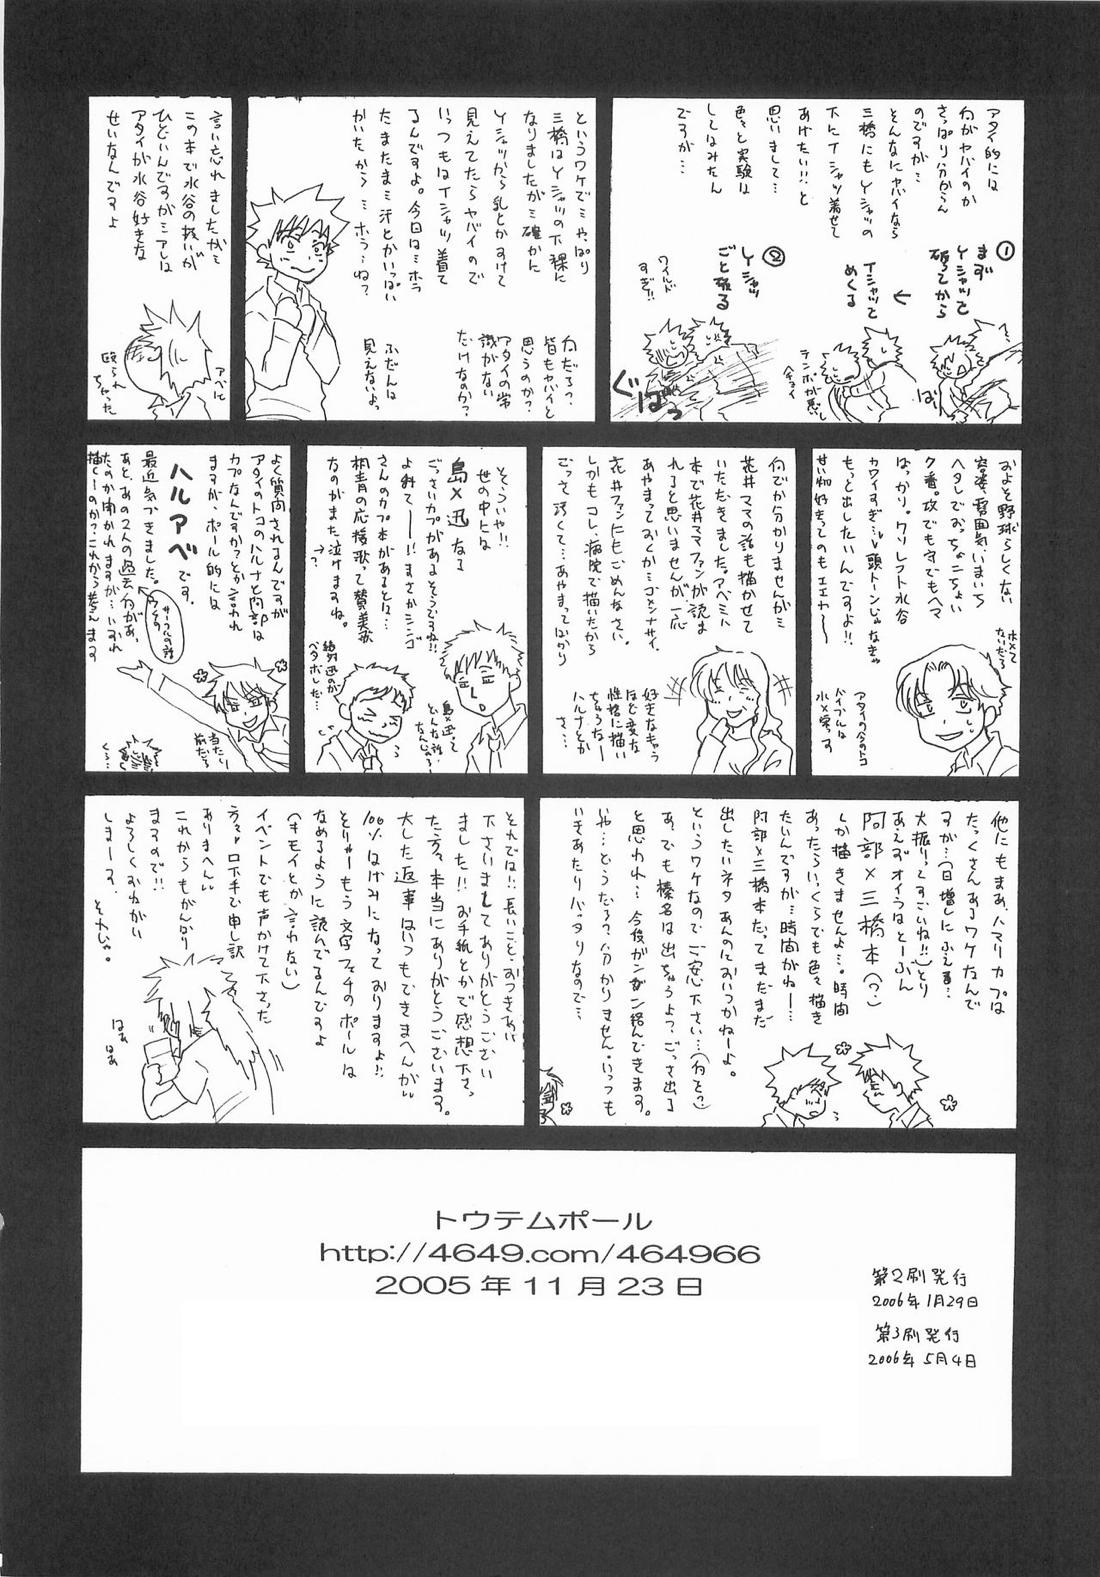 アタイ的には
何がヤバイのか
さっぱり分からん
のですが…
そんなにヤバイなら
三橋にもYシャツの
下にTシャツ着せて
あげたい!!と
思いまして…
色々と実験は
してはみたん
ですが…
①
まず
Yシャツを
破ってから
←
Tシャツを
めくる
ば
テンポが悪し
②
Yシャツ
ごと破る
ワイルド
すぎ!!
ぐばっ
というワケで…やっぱり
三橋はYシャツの下裸に
なりましたが…確かに
Yシャツから乳とかすけて
見えてたらヤバイので
いっつもはTシャツ着て
るんですよ。今日は…ホラ
たまたま…汗とかいっぱい
かいたから……ホラ…ね?
皆もヤバイと
思うのか?
アタイの常
識がない
だけなのか?
ふだんは
見えないよっ
言い忘れましたが…
この本で水谷の扱いが
ひどいんですが…アレは
アタイが水谷好きな
せいなんですよ
アベに
殴られ
ちゃった
およそ野球らしくない
容姿、雰囲気、いまいち
ヘタレでおっちょこちょい
ク番。攻でも守でもヘマ
ばっかり。クソレフト水谷
カワイすぎ…頭トーンじゃなきゃ
もっと出したいんですよ!!
ホメて
ないだろ
アタイの今のトコ
バイブルは
水×栄っす
何でか分かりませんが…
花井ママの話も描かせて
いただきました。アベミハ
本で花井ママファンが読ま
れると思いませんが、一応
あやまっておくか…ゴメンナサイ。
花井ファンにもごめんなさい。
しかもコレ、病院で描いたから
ごっさ汚くて…あやまってばかり
好きなキャラ
ほど変な
性格に描い
ちゃうなー
ハルナとか
さ…
そういや!!
世の中には
島×迅なる
ごっさいカプがあるとゆうですね!!
よみてーー!!まさかシンゴ
さんのカプ本があるとは…
桐青の応援歌って賛美歌
なのがまた泣けますね。
島×迅って
どんな話
なんじゃろー
絶対迅のが
ベタボレだ…
よく質問されるんですが
アタイのトコのハルナと阿部は
カプなんですか?とか言われ
ますが、ポール的には
ハルアベです。
最近気づきました。
あと、あの2人の過去分があ、
たのか聞かれますが…いずれ
描くーのか?これから考えます
当たり
前だろ
くっ…
他にもまあ、ハマリカプは
たっくさんあるワケなんで
すが…(日増しにふえる…
大振りってすごいね!!)とり
あえず、オイラはとーぶん
阿部×三橋本(?)
しか描きませんよ…。時間
あったらいっくらでも色々描き
たいんですが…時間がねー…
阿部×三橋本だってまだまだ
出したいネタあんのにおいつかねーよ。
というワケなのでご安心下さい…(何を?)
あ、でも榛名は出ちゃうよっ?ごっさ出る
と思われ…今後ガンガン絡んできます。
いや…どうだろ?分かりません。いっつも
いきあたりバッタリなので…
それでは!!長いことおつきあい
下さいましてありがとうござい
ました!!お手紙とかで感想下さっ
た方々、本当にありがとうございます。
大した返事はいつもできまへんが
100%はげみになっておりますよ!!
とりゃーもう文字フェチのポールは
なめるように読んでるんですよ
(キモイとか言わない)
イベントでも声かけて下さった
方々、口下手で申し訳
ありまへん!!
これからもがんばり
ますので!!
よろしくおねがい
します。
それじゃ。
はぁ
はぁ
トウテムポール
http://4649.com/464966
2005年11月23日
第2刷発行
2006年1月29日
第3刷発行
2006年5月4日